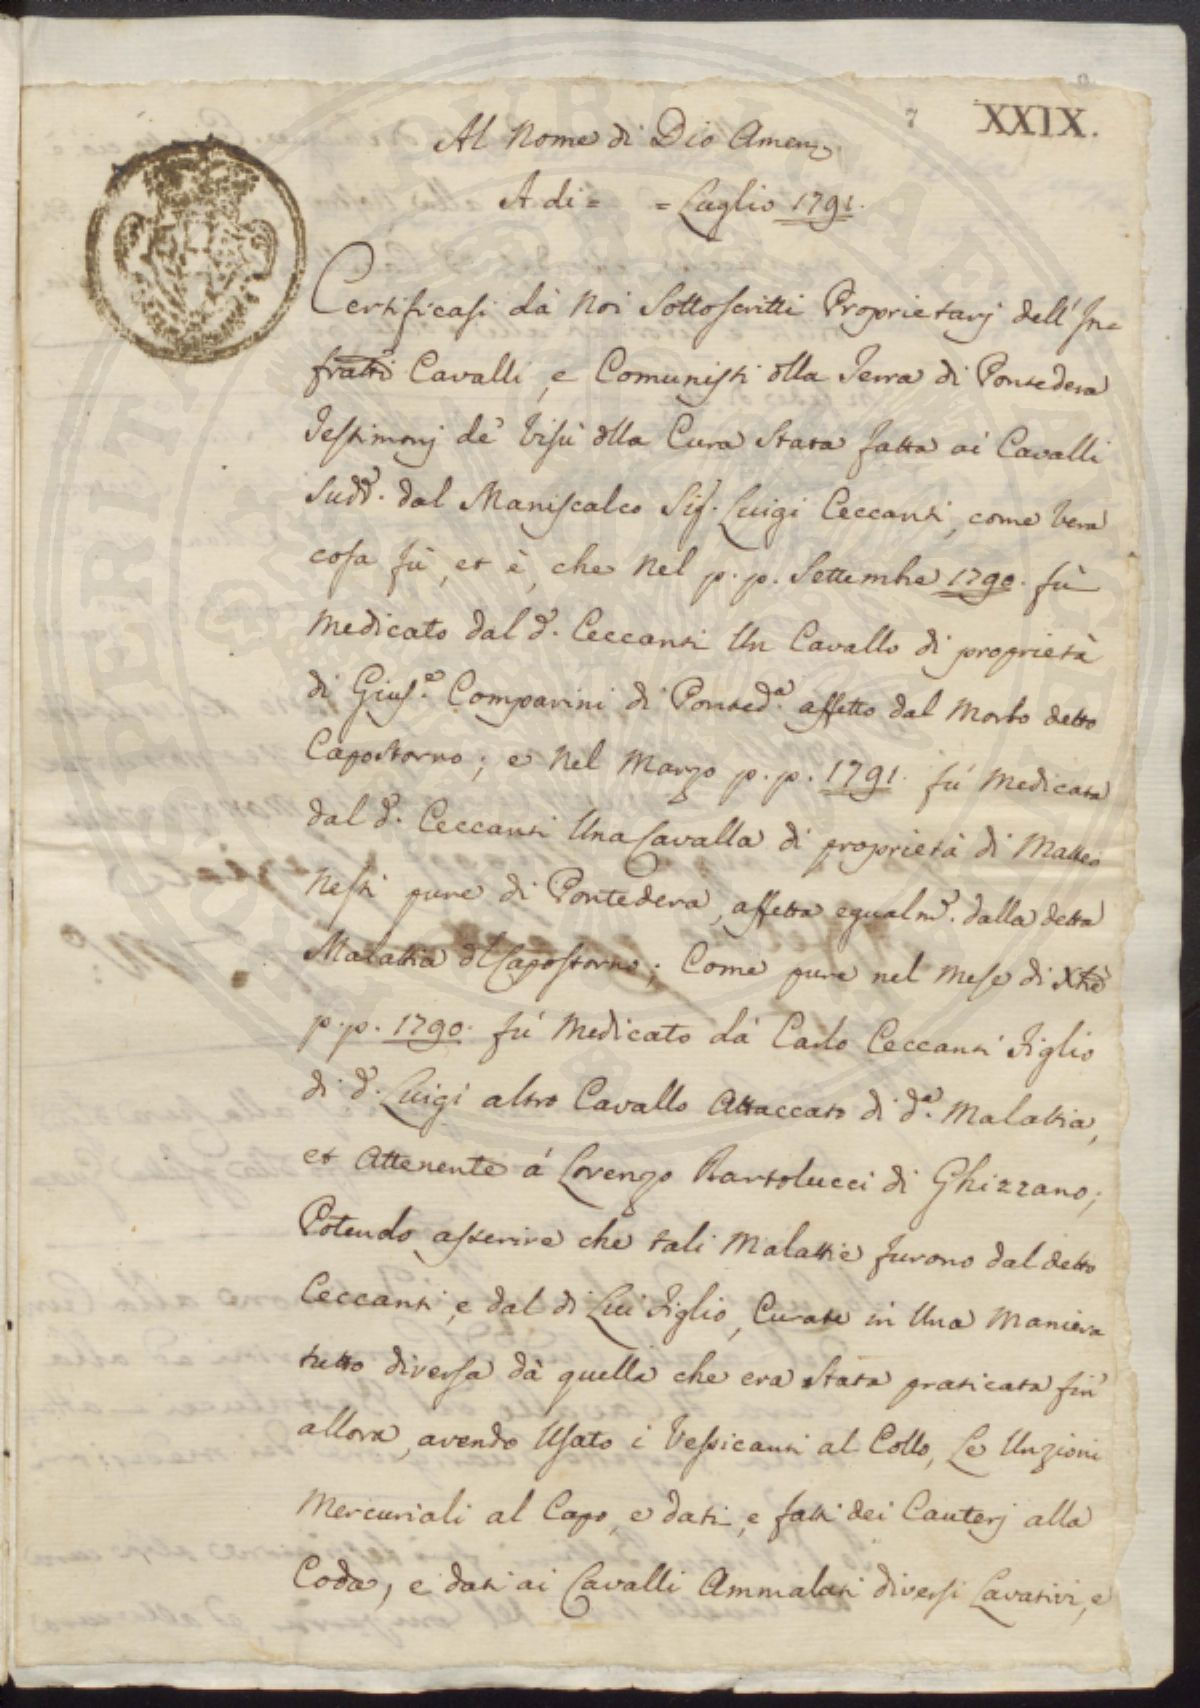 7 XXIX.
Al Nome di Dio Amen
A di = = Luglio 1791.
Certificasi dà Noi Sottoscritti Proprietarj dell' In=
fratti Cavalli, e Comunisti dlla Terra di Pontedera
Testimonj de' Visù dlla Cura Stata fatta ai Cavalli
Sudd. dal Maniscalco Sig. Luigi Ceccanti, come Vera
cosa fù, et è, che Nel p. p. Settembre 1790. fù
Medicato dal d. Ceccanti Un Cavallo di proprietà
di Gius.e Comparini di Ponted.a affetto dal Morbo detto
Capostorno; e Nel Marzo p. p. 1791. fù Medicata
dal d. Ceccanti Una Cavalla di proprietà di Matteo
Nesti pure di Pontedera, affetta egualm. dalla detta
Malattia dl Capostorno; Come pure nel Mese di Xbre
p. p. 1790. fù Medicato dà Carlo Ceccanti Figlio
di d. Luigi altro Cavallo Attaccato di d.a Malattia,
et Attenente á Lorenzo Bartolucci di Ghizzano;
Potendo asserire che tali Malattie furono dal detto
Ceccanti, e dal di Lui Figlio, Curate in Una Maniera
tutto diversa dà quella che era Stata praticata fin'
allora, avendo Usato i Vessicanti al Collo, Le Unzioni
Mercuriali al Capo, e dati, e fatti dei Cauterj alla
Coda, e dati ai Cavalli Ammalati diversi Lavativi, e